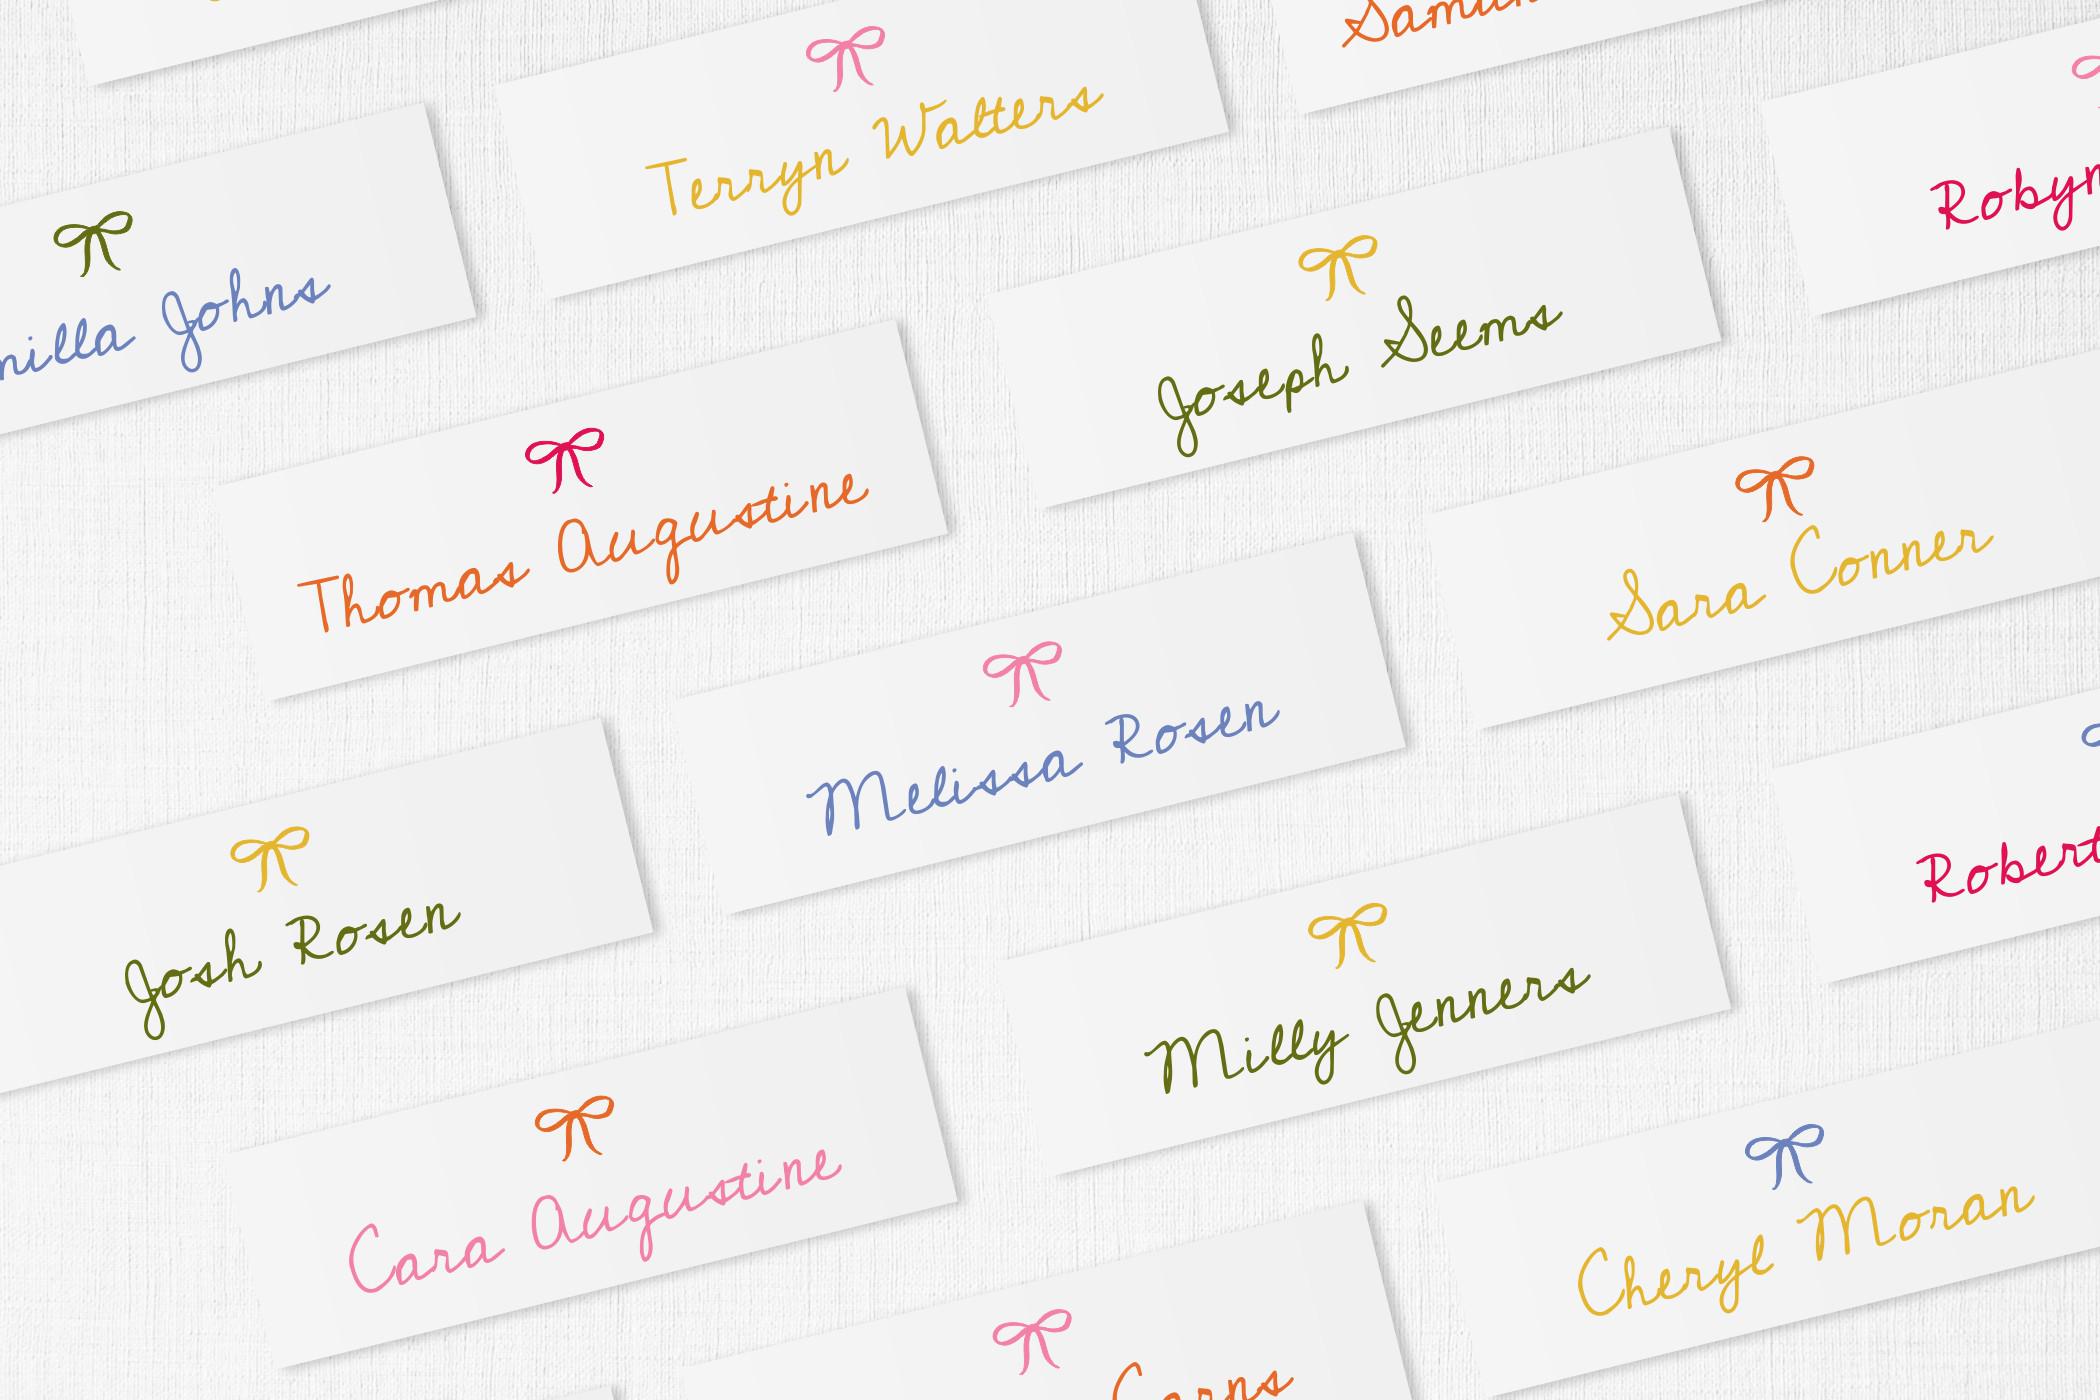 Terryn Walters
Johns
Joseph Seems
Thomas Augustine
Sara Conner
Melissa Rosen
Josh Rosen
Milly Jenners
Cara Augustine
Cheryl Moran